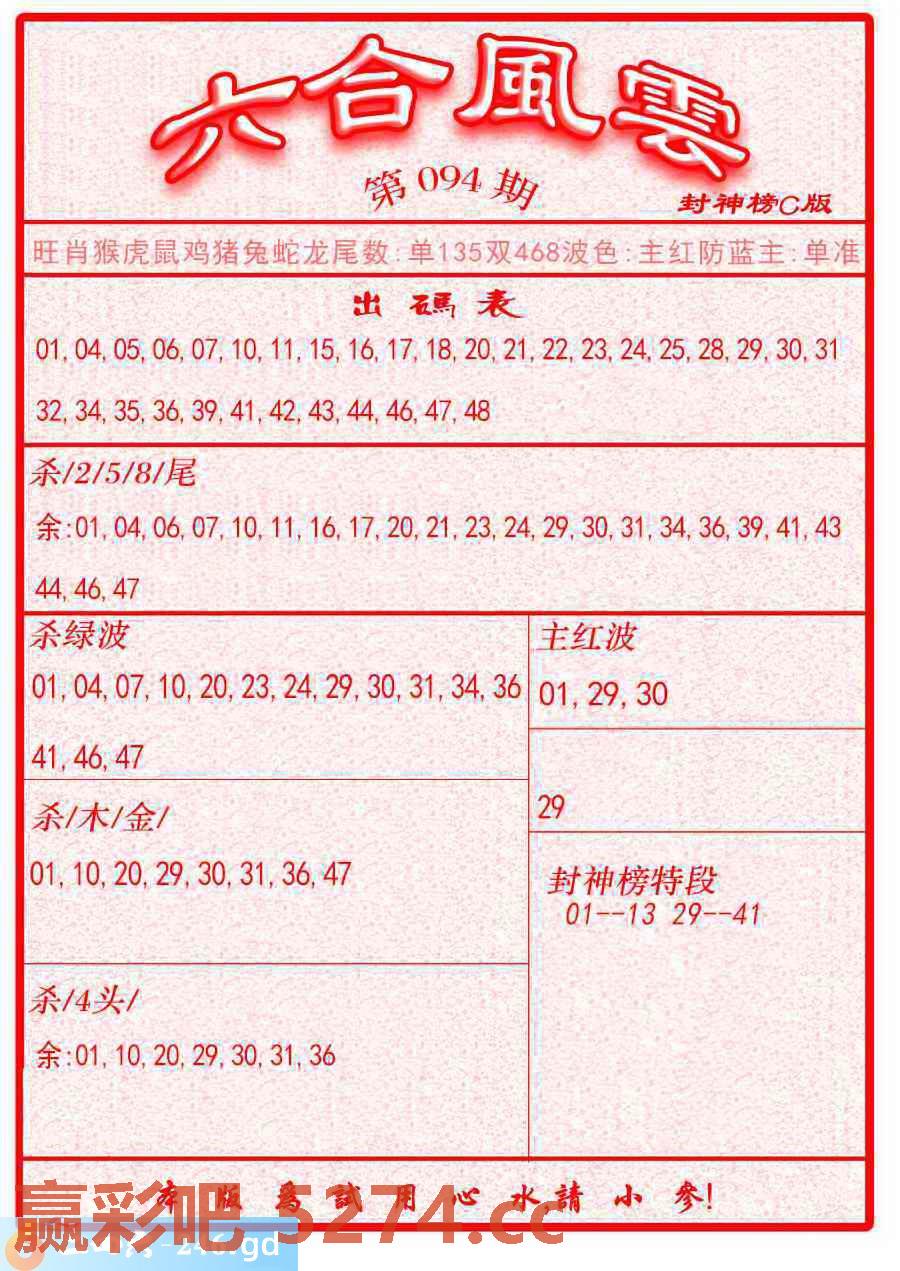 六合風雲
第094期
封神榜C版
旺肖猴虎鼠鸡猪兔蛇龙尾数:单135双468波色:主红防蓝主:单准
出碼表
01,04,05,06,07,10,11,15,16,17,18,20,21,22,23,24,25,28,29,30,31
32,34,35,36,39,41,42,43,44,46,47,48
杀/2/5/8/尾
余:01,04,06,07,10,11,16,17,20,21,23,24,29,30,31,34,36,39,41,43
44,46,47
杀绿波
01,04,07,10,20,23,24,29,30,31,34,36
41,46,47
主红波
01,29,30
29
杀/木/金/
01,10,20,29,30,31,36,47
封神榜特段
01--13 29--41
杀/4头/
余:01,10,20,29,30,31,36
本版爲試用心水請小參!
赢彩吧 5274.cc
246.gd